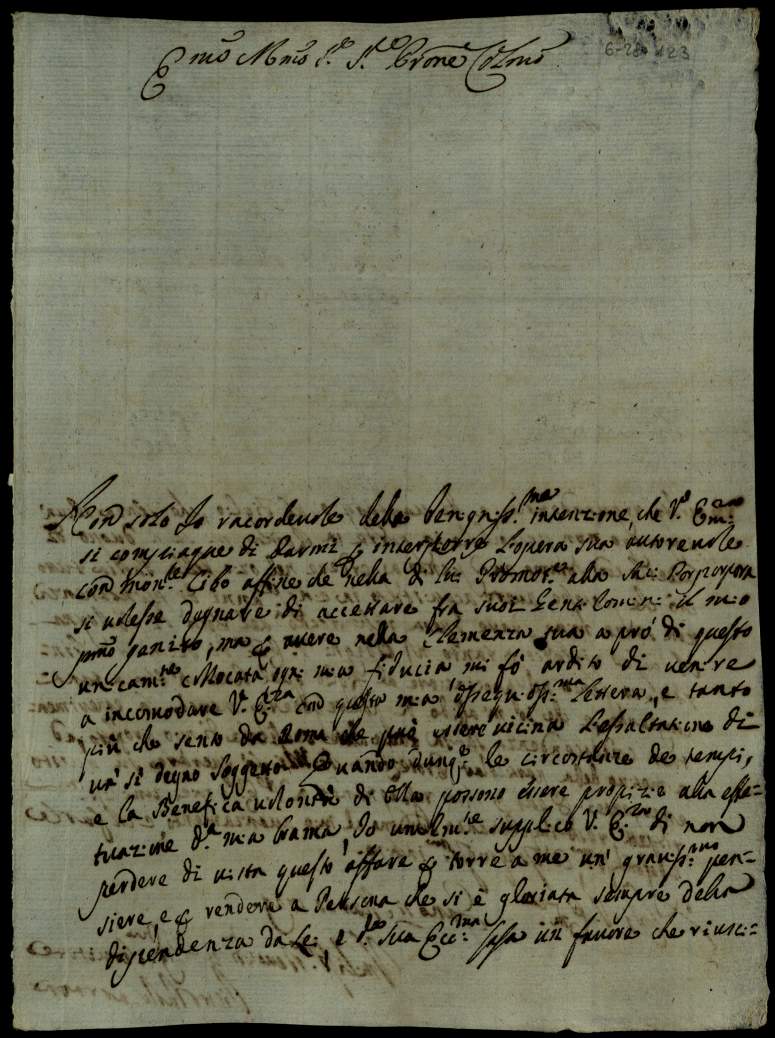 Emo Rmo Sr. Sr. Prone Colmo
6-28 123
Non solo Io racordevole della benigniss.ma intenzione, che V.a Em.za
si compiaque di darmi di interporre l'opera sua autorevole
con Mons.re Cibo affine che nella di lui Promoz.ne alla Sac: Porpora
si volesse dignare di accettare fra suoi Gentilomini il mio
pmo genito, ma di avere nella Clemenza sua a prò di questo
unicam.te collocata ogni mia fiducia mi fò ardito di venire
a incomodare V. E.za con questa mia ossequiosiss.ma lettera, e tanto
più che sento da Roma che può essere vicina l'essaltazione di
un' sì degno Soggetto Quando dunq.e le circostanze de tempi,
e la Benefica volontà di Ella possono essere propizie alla effe=
tuazione d.a mia brama, Io umilm.te supplico V. E.za di non
perdere di vista questo affare di torre a me un' graviss.mo pen=
siere, e di rendere a Persona che si è gloriata sempre della
dipendenza da Lei, e d. sua Ecc.ma Casa un favore che riusci=